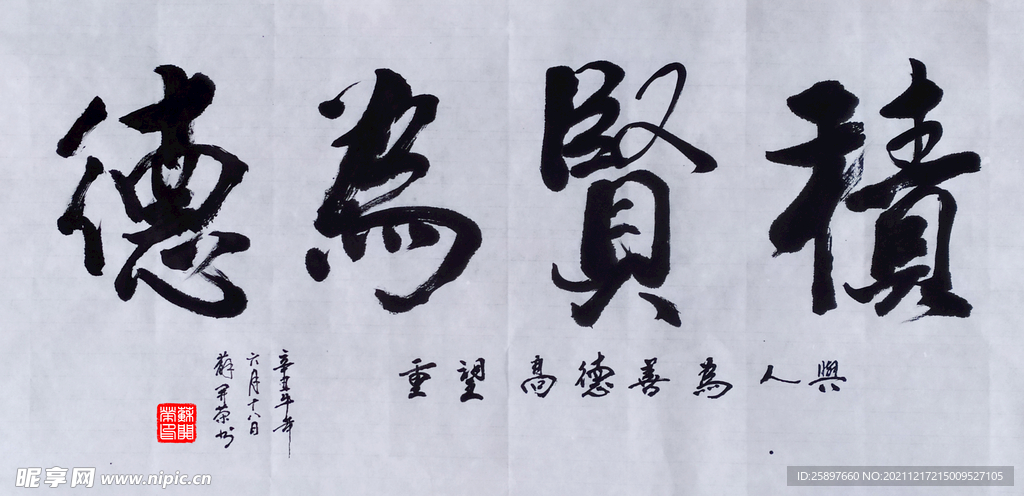 積賢為德
與人為善德高望重
辛丑年
六月十八日
蘇開榮书
昵享网 www.nipic.cn
ID:25897660 NO:20211217215009527105